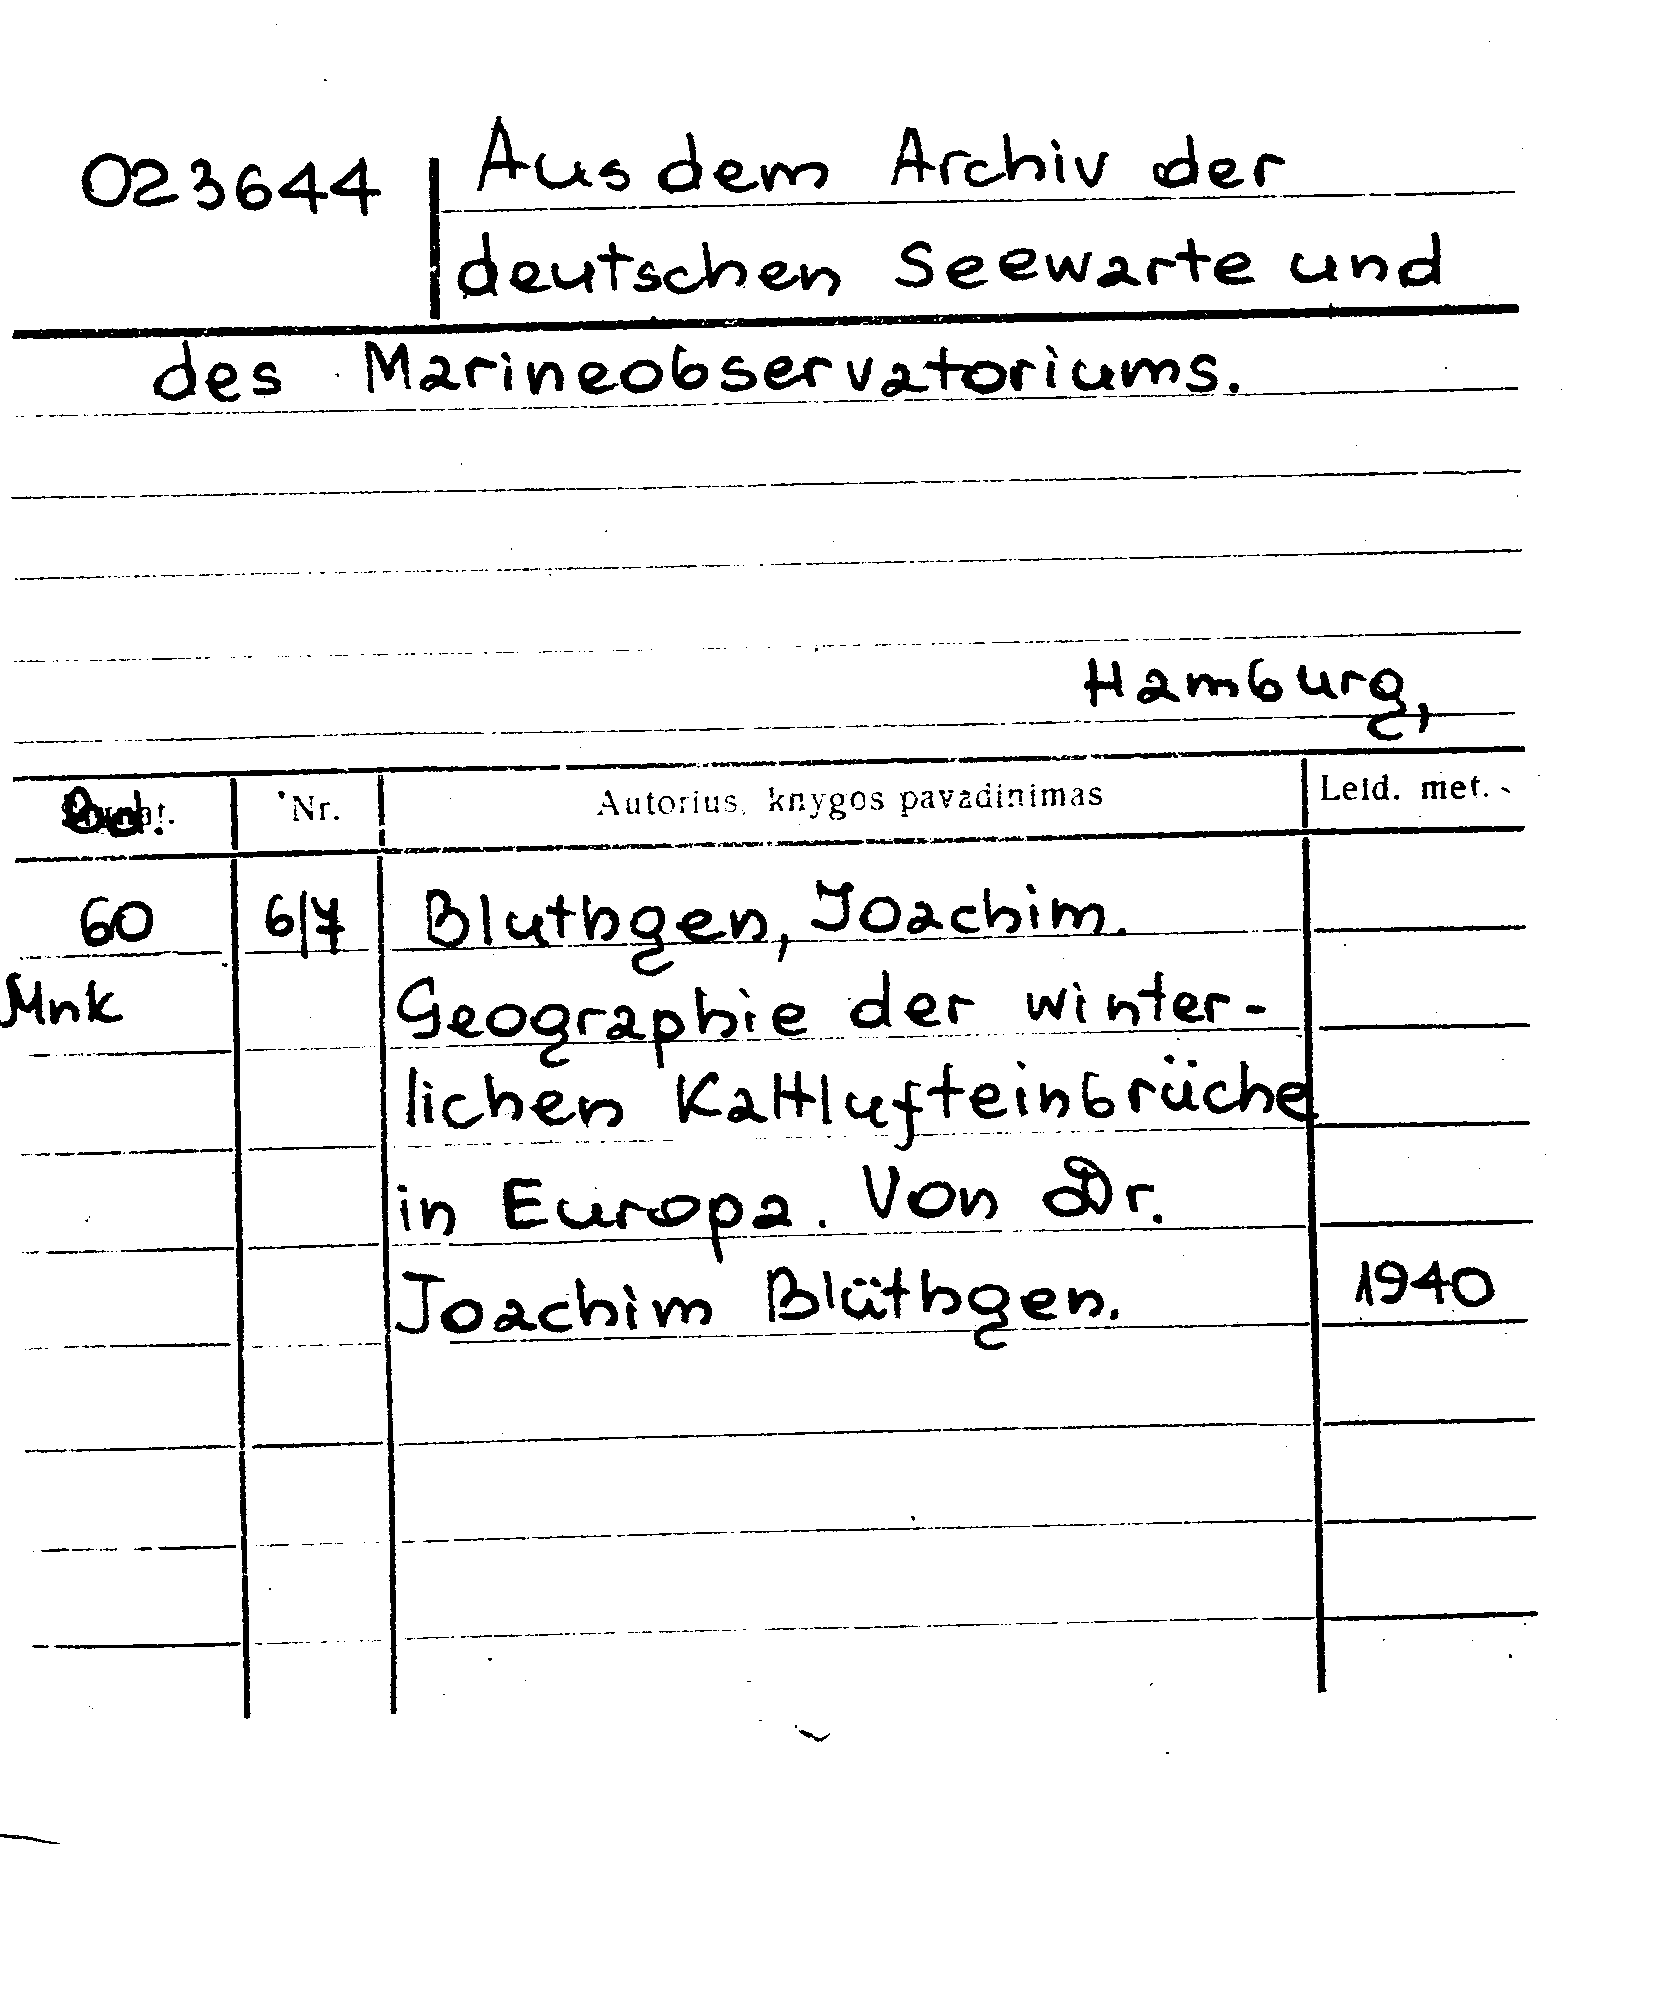 023644 Aus dem Archiv der
deutschen Seewarte und
des Marineobservatoriums.
Hamburg,
Bd. Nr. Autorius, knygos pavadinimas Leid. met.
60 6/7 Bluthgen, Joachim.
Mnk Geographie der winter-
lichen Kaltlufteinbrüche
in Europa. Von Dr.
Joachim Blüthgen. 1940